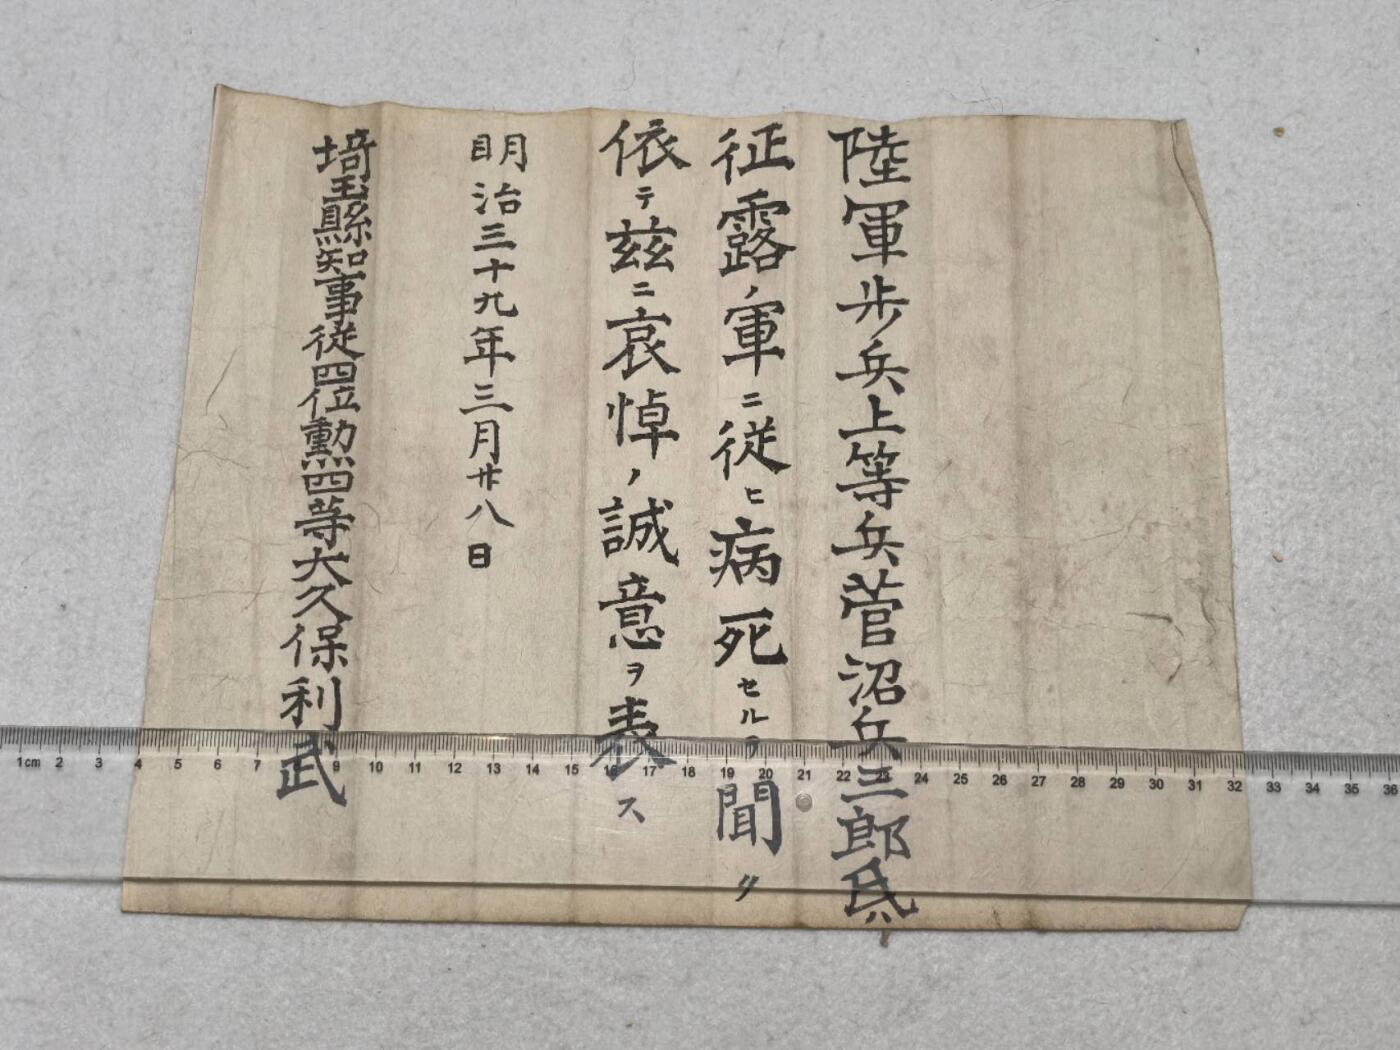 陸軍步兵上等兵菅沼兵三郎氏ハ
征露ノ軍ニ從ヒ病死セルヲ聞ク
依テ茲ニ哀悼ノ誠意ヲ表ス
明治三十九年三月廿八日
埼玉縣知事從四位勲四等大久保利武
1cm 2 3 4 5 6 7 9 10 11 12 13 14 15 16 17 18 19 20 21 22 23 24 25 26 27 28 29 30 31 32 33 34 35 36